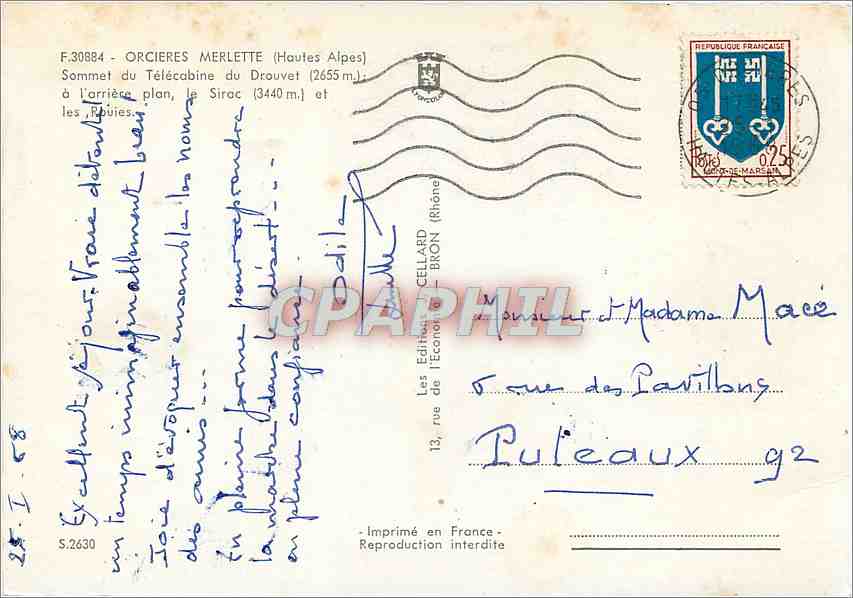 F.30884 - ORCIERES MERLETTE (Hautes Alpes)
Sommet du Télécabine du Drouvet (2655 m.);
à l'arrière plan, le Sirac (3440 m.) et
les Rouies.
LYONCOLOR
REPUBLIQUE FRANÇAISE
Postes 0,25
MONT-DE-MARSAN
HAUTES-ALPES
25 . I . 68
Excellent séjour. Vraie détente
un temps inimaginablement beau!
Joie d'évoquer ensemble les noms
des amis ---
En pleine forme pour reprendre
la marche dans le désert ---
en pleine confiance.
Odile
Les Editions CELLARD
13, rue de l'Economie - BRON (Rhône
Monsieur et Madame Macé
6 rue des Pavillons
Puteaux 92
S.2630
- Imprimé en France -
Reproduction interdite
CPAPHIL